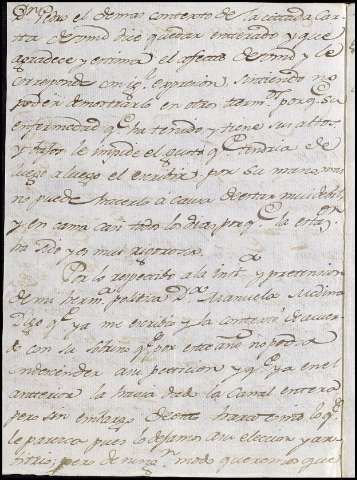 Dn. Pedro el demas contexto de la citada Car
ta de Vmd dice quedar enterado y que
agradece y estima el afecto de Vmd y le
corresponde con igl. expresion sintiendo no
poder demostrarlo en otros term.s porq.e su
enfermedad q.e ha tenido y tiene sus altos
y bajos le impide el gusto q.e tendria de
luego a luego el escribir por su mano mas
no puede hacerlo à causa de estar mui debil
y en cama casi todo lo dia, porq.e la
ha sido y es mui rigorosa.
Por lo respectibo a la inst.a y pretension
de mi herm.a politica D.a Manuela Medina
Digo q.e ya me escribio y la conteste de acuer
do con su sobrino q.e por este año no podia
condescender a su peticion y q.e ya en el
antterior la havia dado la Canal entera
pero sin embargo de esto hara como lo q.e
le parezca pues lo dejamo a su eleccion y ar
vitrio; pero de ning.n modo queremos que